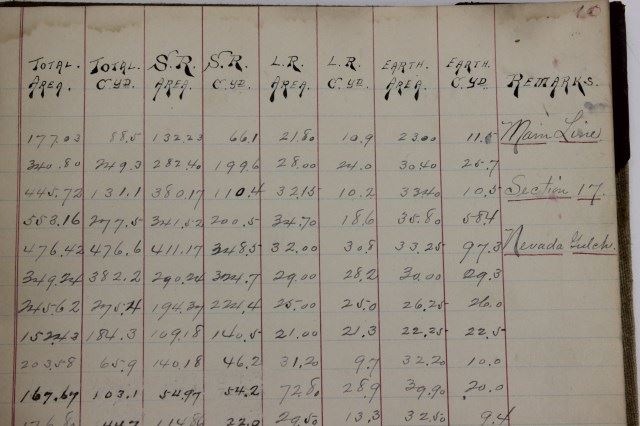 TOTAL. AREA. TOTAL C. YD. S.R. AREA. S.R. C. YD. L.R. AREA. L.R. C. YD. EARTH. AREA. EARTH. C. YD. REMARKS.
177.03 88.5 132.23 66.1 21.80 10.9 23.00 11.5 Main Line
340.80 249.3 282.40 199.6 28.00 24.0 30.40 25.7
445.72 131.1 380.17 110.4 32.15 10.2 33.40 10.5 Section 17.
553.16 277.5 341.52 200.5 34.70 18.6 35.80 58.4
476.42 476.6 411.17 348.5 32.00 30.8 33.25 97.3 Nevada Gulch.
349.24 382.2 290.24 324.7 29.00 28.2 30.00 29.3
245.62 275.4 194.37 224.4 25.00 25.0 26.25 26.0
152.43 184.3 109.18 140.5 21.00 21.3 22.25 22.5
203.58 65.9 140.18 46.2 31.20 9.7 32.20 10.0
167.67 103.1 54.97 54.2 72.80 28.9 39.90 20.0
114.80 22.0 29.50 13.3 32.50 9.4